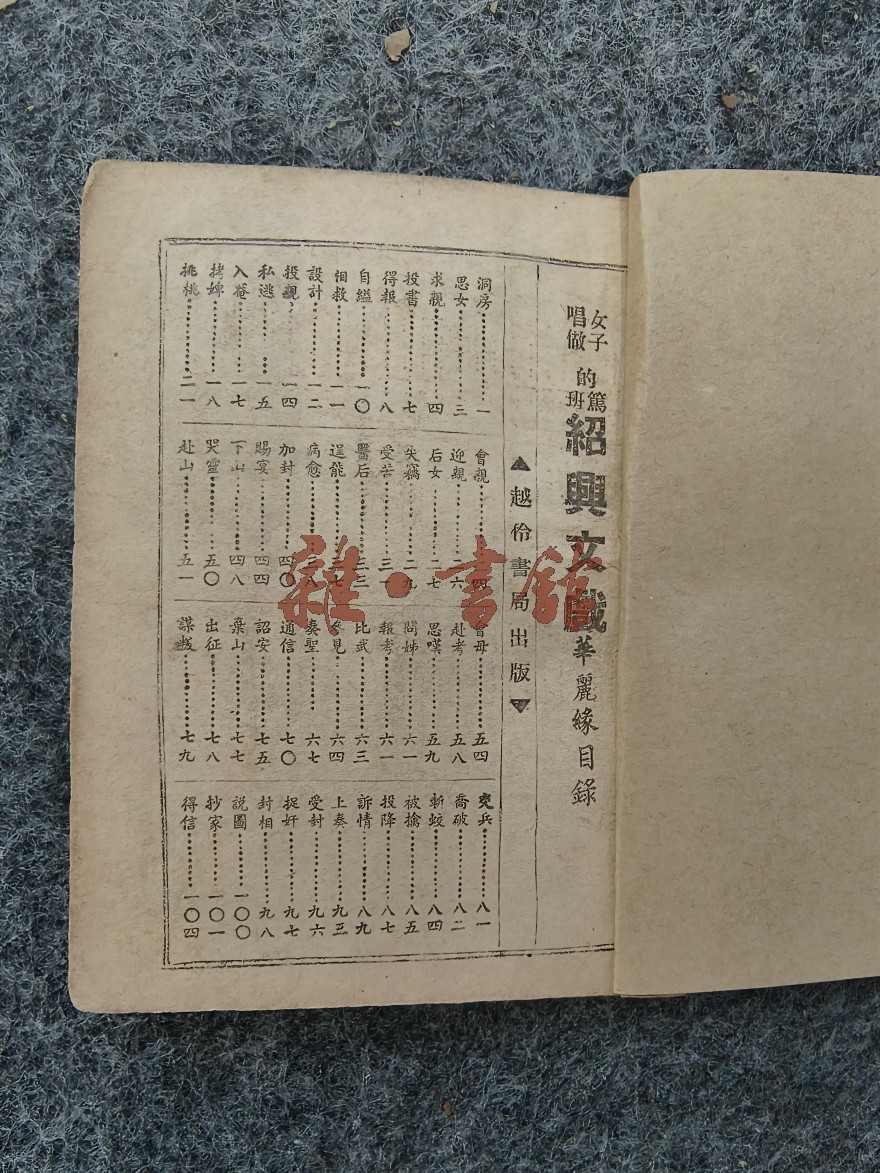 女子唱做的篤班
紹興文戲華麗緣目錄
▲越伶書局出版▼
洞房……一
思女……三
求親……四
投書……七
得報……八
自縊……一〇
相救……一一
設計……一二
投親……一四
私逃……一五
入菴……一七
拷婢……一八
桃……二一
會親……二四
迎親……二六
后女……二七
失竊……二九
受苦……三一
醫后……三三
逞能……三七
病愈……三八
加封……四〇
賜宴……四四
下山……四八
哭靈……五〇
赴山……五一
會母……五四
赴考……五八
思嘆……五九
問姊……六一
報考……六一
比武……六三
參見……六四
奏聖……六七
通信……七〇
詔安……七五
棄山……七七
出征……七八
謀叛……七九
交兵……八一
喬破……八二
斬蛟……八四
被擒……八五
投降……八七
訴情……八九
上奏……九三
受封……九六
捉奸……九七
封相……九八
說圖……一〇〇
抄家……一〇一
得信……一〇四
雜·書館